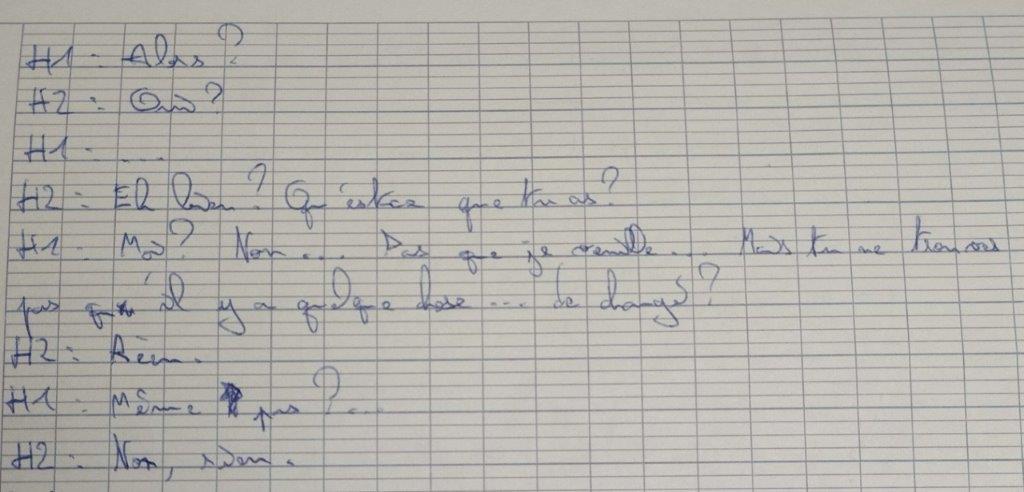 H1 : Alors ?
H2 : Oui ?
H1 : ....
H2 : Eh bien ? Qu'est-ce que tu as ?
H1 : Moi ? Non .... Pas que je veuille .... Mais tu ne trouves
pas qu'il y a quelque chose .... de changé ?
H2 : Rien.
H1 : Même pas ? ...
H2 : Non, rien.